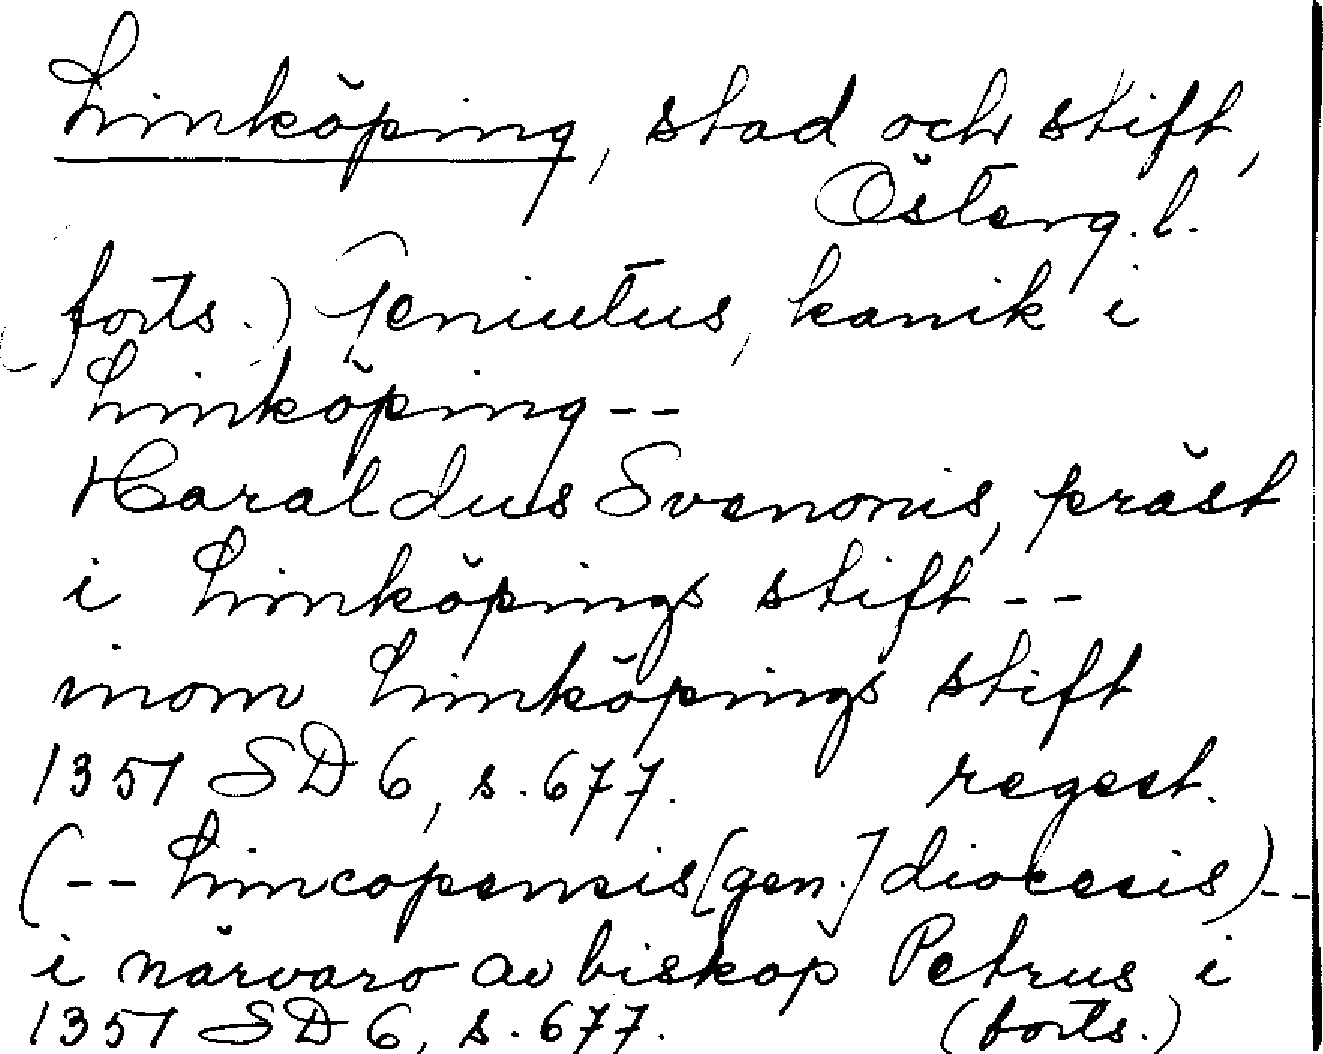 Linköping, stad och stift,
Österg. l.
(forts.) Geniutus, kanik i
Linköping--
Haraldus Svenonis, präst
i Linköpings stift--
inom Linköpings stift
1351 SD 6, s. 677. regest.
(-- Lincopensis [gen.] diocesis)--
i närvaro av biskop Petrus i
1351 SD 6, s. 677. (forts.)